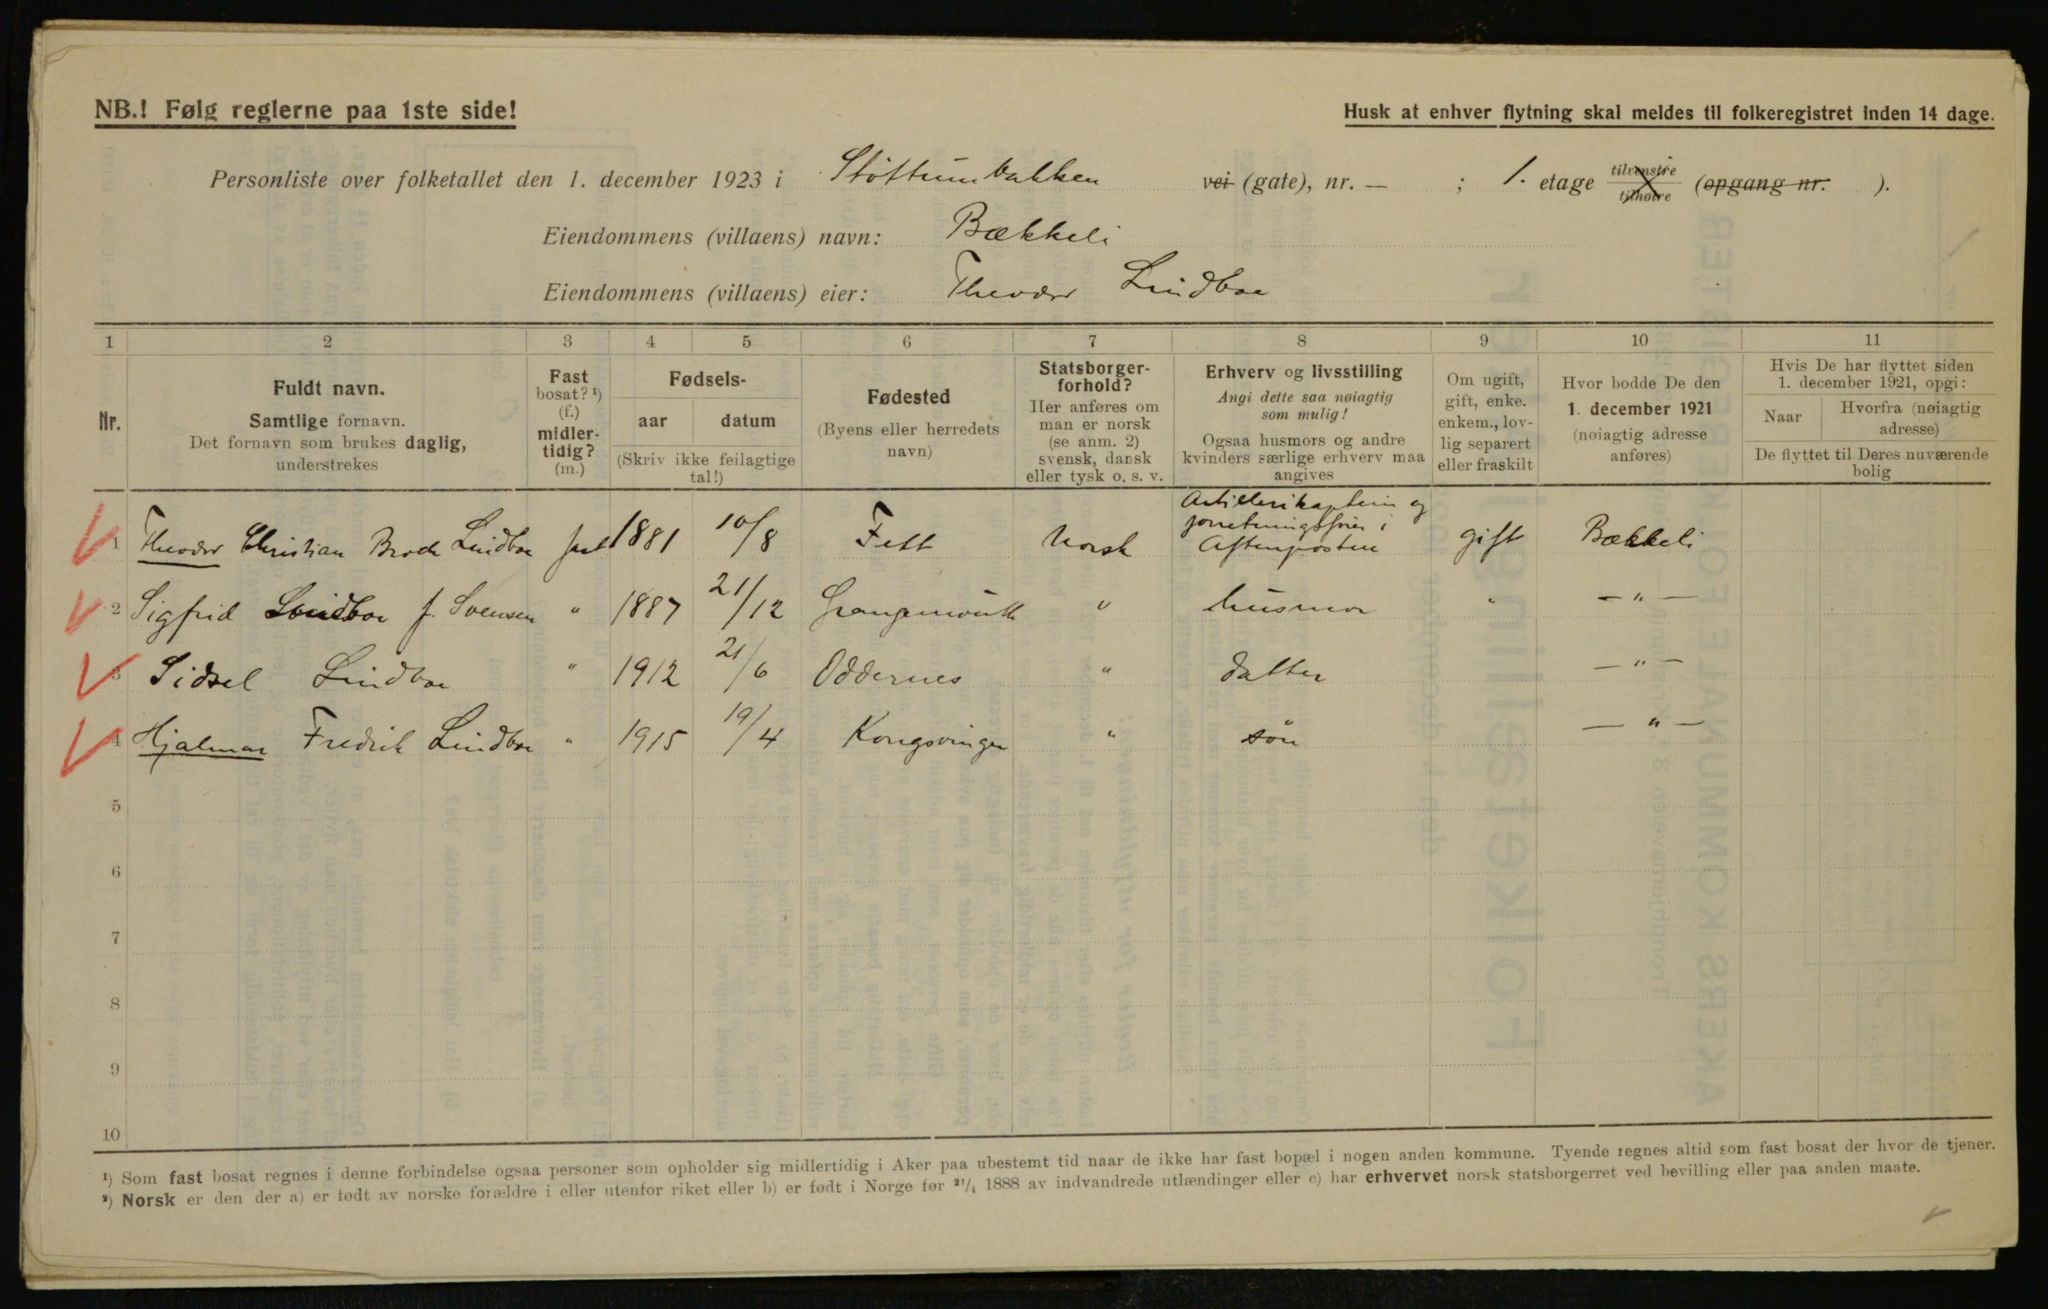 NB.! Følg reglerne paa 1ste side!
Husk at enhver flytning skal meldes til folkeregistret inden 14 dage.
Personliste over folketallet den 1. december 1923 i Støttumbakken vei (gate), nr. — ; 1. etage tilvenstre tilhøire (opgang nr. ).
Eiendommens (villaens) navn: Bækkeli
Eiendommens (villaens) eier: Theodor Lindboe
1 2 3 4 5 6 7 8 9 10 11
Nr.
Fuldt navn.
Samtlige fornavn.
Det fornavn som brukes daglig,
understrekes
Fast
bosat? ¹)
(f.)
midler-
tidig?
(m.)
Fødsels-
aar datum
(Skriv ikke feilagtige
tal!)
Fødested
(Byens eller herredets
navn)
Statsborger-
forhold?
Her anføres om
man er norsk
(se anm. 2)
svensk, dansk
eller tysk o. s. v.
Erhverv og livsstilling
Angi dette saa nøiagtig
som mulig!
Ogsaa husmors og andre
kvinders særlige erhverv maa
angives
Om ugift,
gift, enke.
enkem., lov-
lig separert
eller fraskilt
Hvor bodde De den
1. december 1921
(nøiagtig adresse
anføres)
Hvis De har flyttet siden
1. december 1921, opgi:
Naar Hvorfra (nøiagtig
adresse)
De flyttet til Deres nuværende
bolig
1 Theodor Christian Broch Lindboe fast 1881 10/8 Fett Norsk Artillerikaptein og
forretningsfører i
Aftenposten gift Bækkeli
2 Sigfrid Lindboe f. Svensen " 1887 21/12 Grangemouth " husmor " — " —
3 Sidsel Lindboe " 1912 21/6 Oddernes " datter — " —
4 Hjalmar Fredrik Lindboe " 1915 19/4 Kongsvinger " søn — " —
5
6
7
8
9
10
¹) Som fast bosat regnes i denne forbindelse ogsaa personer som opholder sig midlertidig i Aker paa ubestemt tid naar de ikke har fast bopæl i nogen anden kommune. Tyende regnes altid som fast bosat der hvor de tjener.
²) Norsk er den der a) er født av norske forældre i eller utenfor riket eller b) er født i Norge før ²¹/₄ 1888 av indvandrede utlændinger eller c) har erhvervet norsk statsborgerret ved bevilling eller paa anden maate.